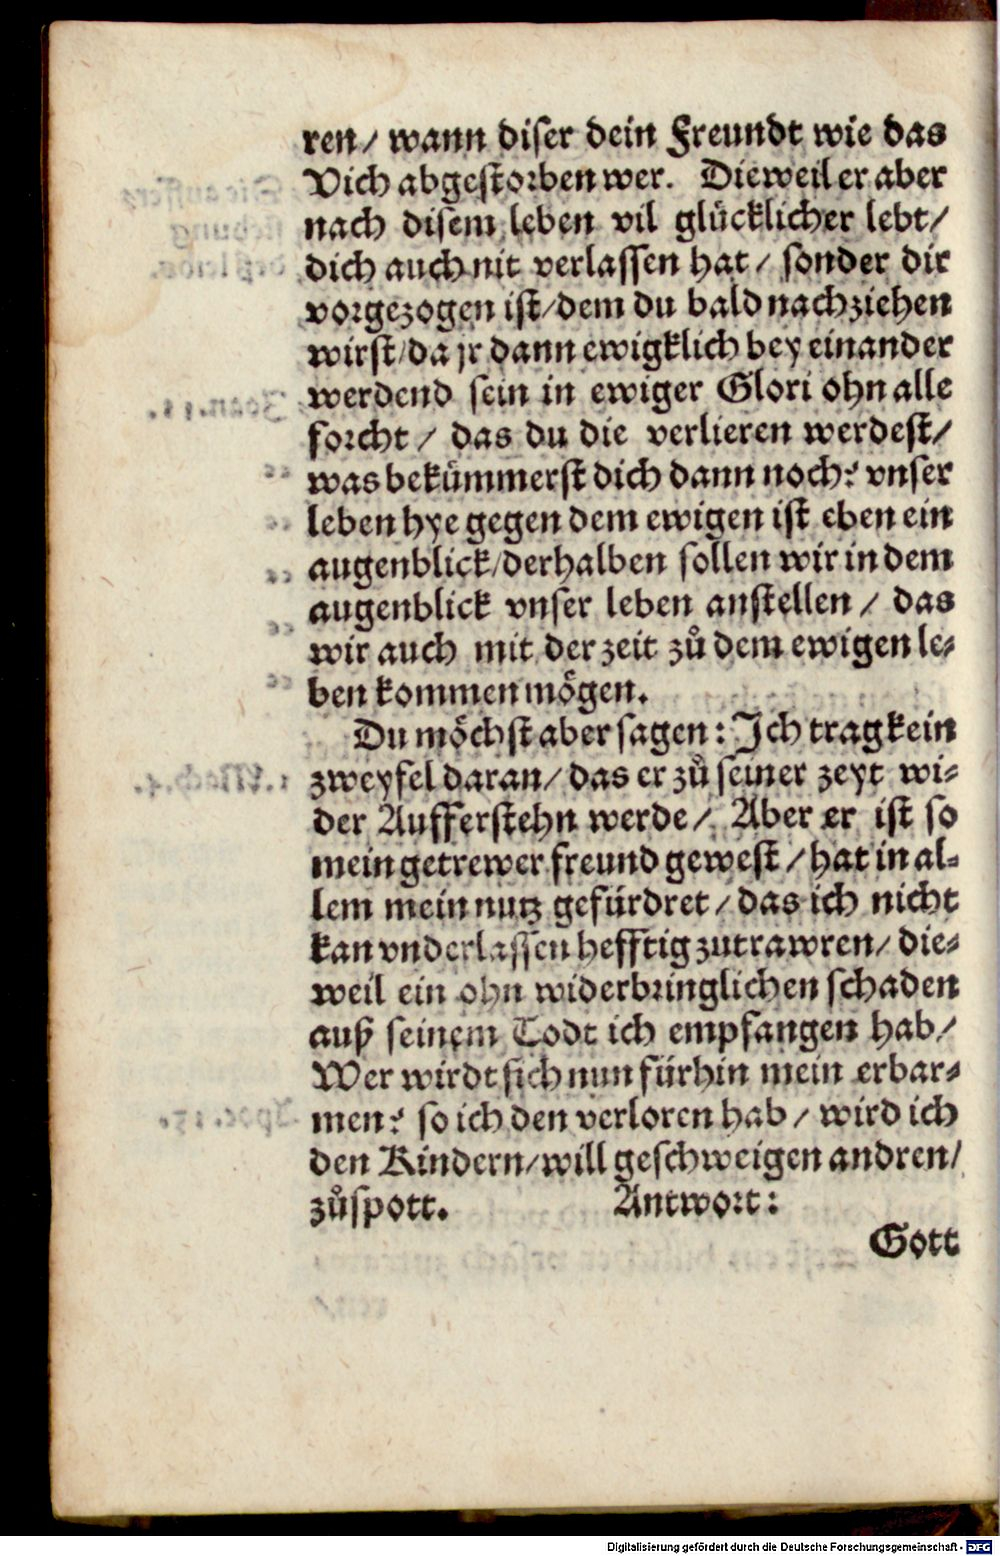 ren/ wann diser dein Freundt wie das
Vich abgestorben wer. Dieweil er aber
nach disem leben vil glücklicher lebt/
dich auch nit verlassen hat/ sonder dir
vorgezogen ist/ dem du bald nachziehen
wirst/ da jr dann ewigklich bey einander
werdend sein in ewiger Glori ohn alle
forcht/ das du die verlieren werdest/
was bekümmerst dich dann noch? vnser
leben hye gegen dem ewigen ist eben ein
augenblick/ derhalben sollen wir in dem
augenblick vnser leben anstellen/ das
wir auch mit der zeit zů dem ewigen le-
ben kommen mögen.
Du möchst aber sagen: Ich trag kein
zweyfel daran/ das er zů seiner zeyt wi-
der Aufferstehn werde/ Aber er ist so
mein getrewer freund gewest/ hat in al-
lem mein nutz gefürdret/ das ich nicht
kan vnderlassen hefftig zutrawren/ die-
weil ein ohn widerbringlichen schaden
auß seinem Todt ich empfangen hab/
Wer wirdt sich nun fürhin mein erbar-
men? so ich den verloren hab/ wird ich
den Kindern/ will geschweigen andren/
zůspott. Antwort:
Gott
Digitalisierung gefördert durch die Deutsche Forschungsgemeinschaft - DFG